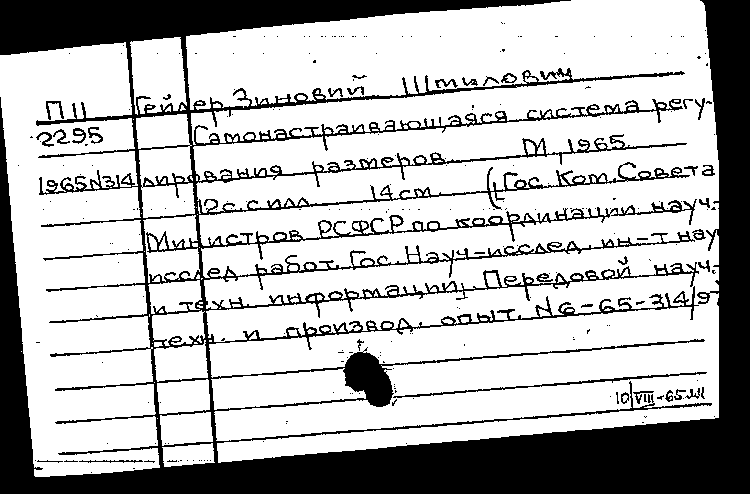 П11 Гейлер, Зиновий Шмилович
2295 Самонастраивающаяся система регу-
1965 N314 лирования размеров. М., 1965.
12 с. с илл. 14 см. (Гос. Ком. Совета
Министров РСФСР по координации науч.-
исслед. работ. Гос. Науч-исслед. ин-т науч
и техн. информации). Передовой науч.-
техн. и производ. опыт. N 6-65-314/97
10/VIII-65